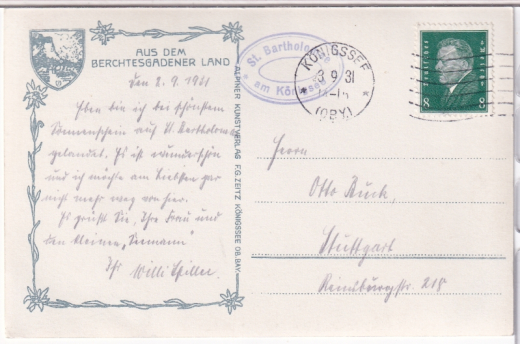 AUS DEM
BERCHTESGADENER LAND
den 2.9.1931
Eben bin ich bei schönstem
Sonnenschein auf St. Bartholomä
gelandet. Es ist wunderschön
und ich möchte am liebsten gar
nicht mehr weg von hier.
Es grüßt Sie, Ihre Frau und
den kleinen „Seemann"
Ihr Willi
ALPINER KUNSTVERLAG F.G. ZEITZ KÖNIGSSEE OB.BAY.
St. Bartholomä
am Königssee
KÖNIGSSEE
3 9 31
(OBY.)
Deutsches Reich
8 8
Herrn
Otto
Stuttgart
Reinsburgstr. 218